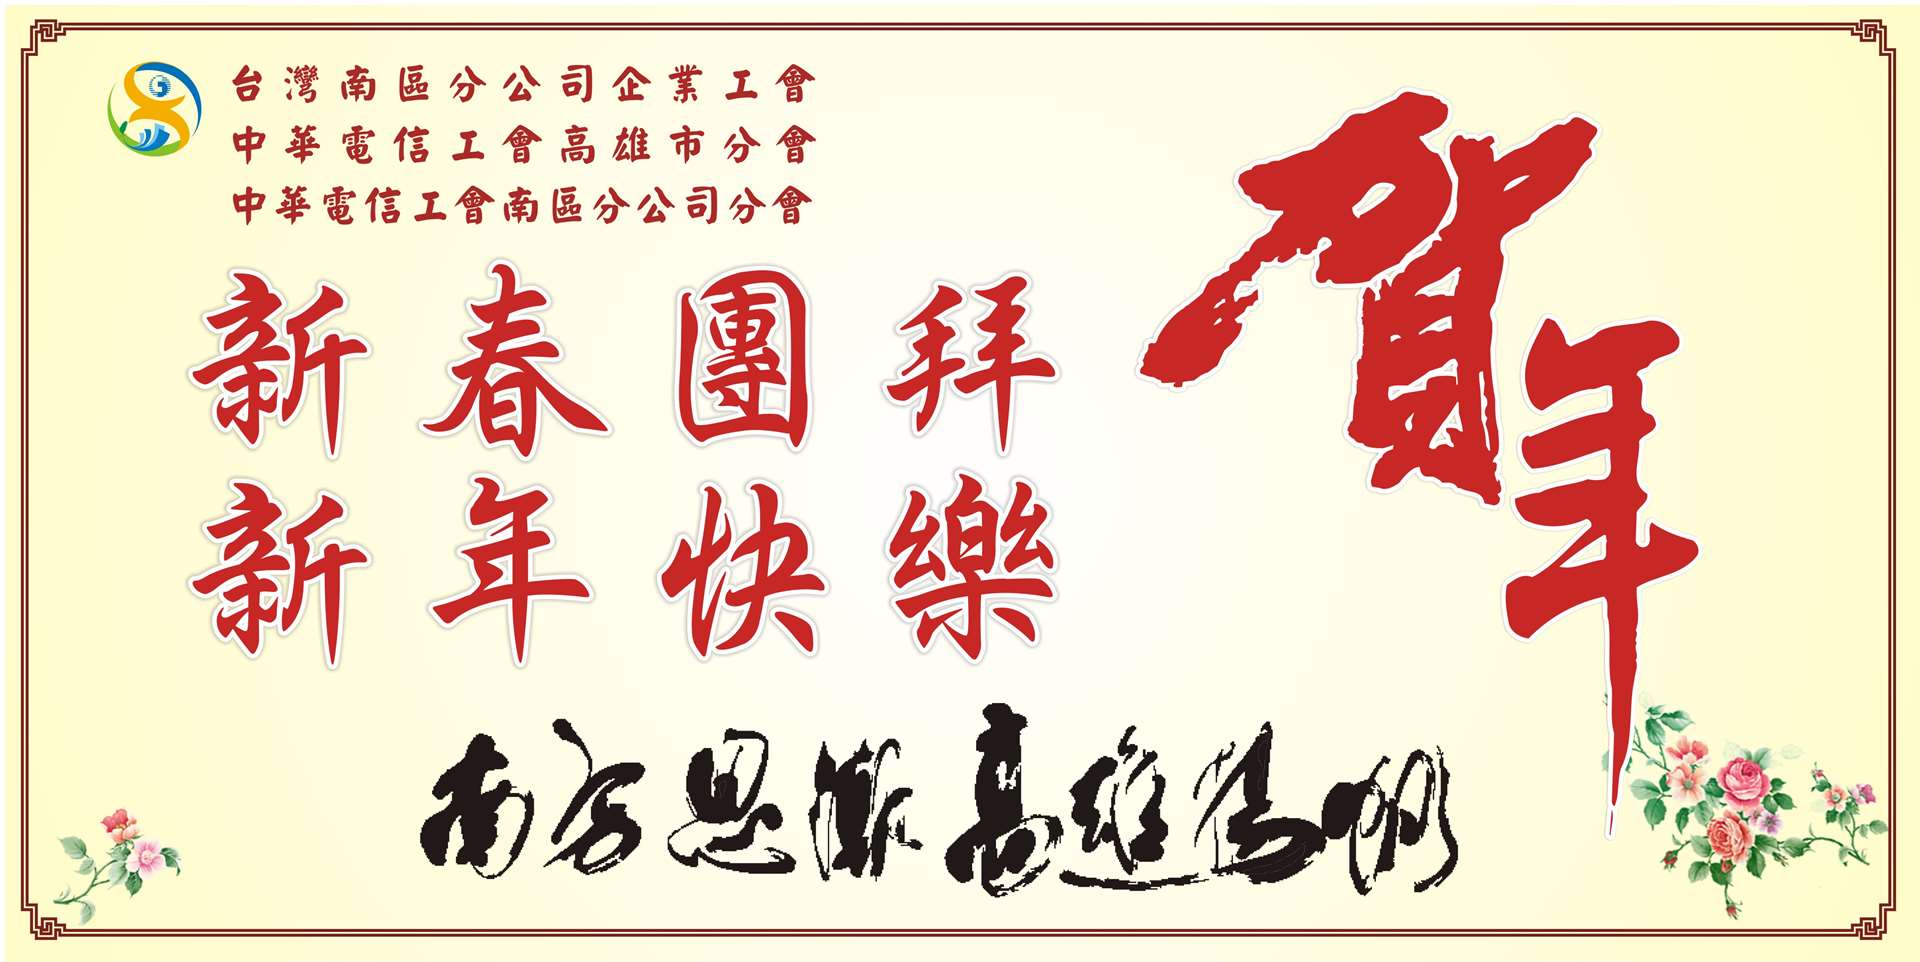 台灣南區分公司企業工會
中華電信工會高雄市分會
中華電信工會南區分公司分會
新春團拜
新年快樂
賀年
南方思
高雄